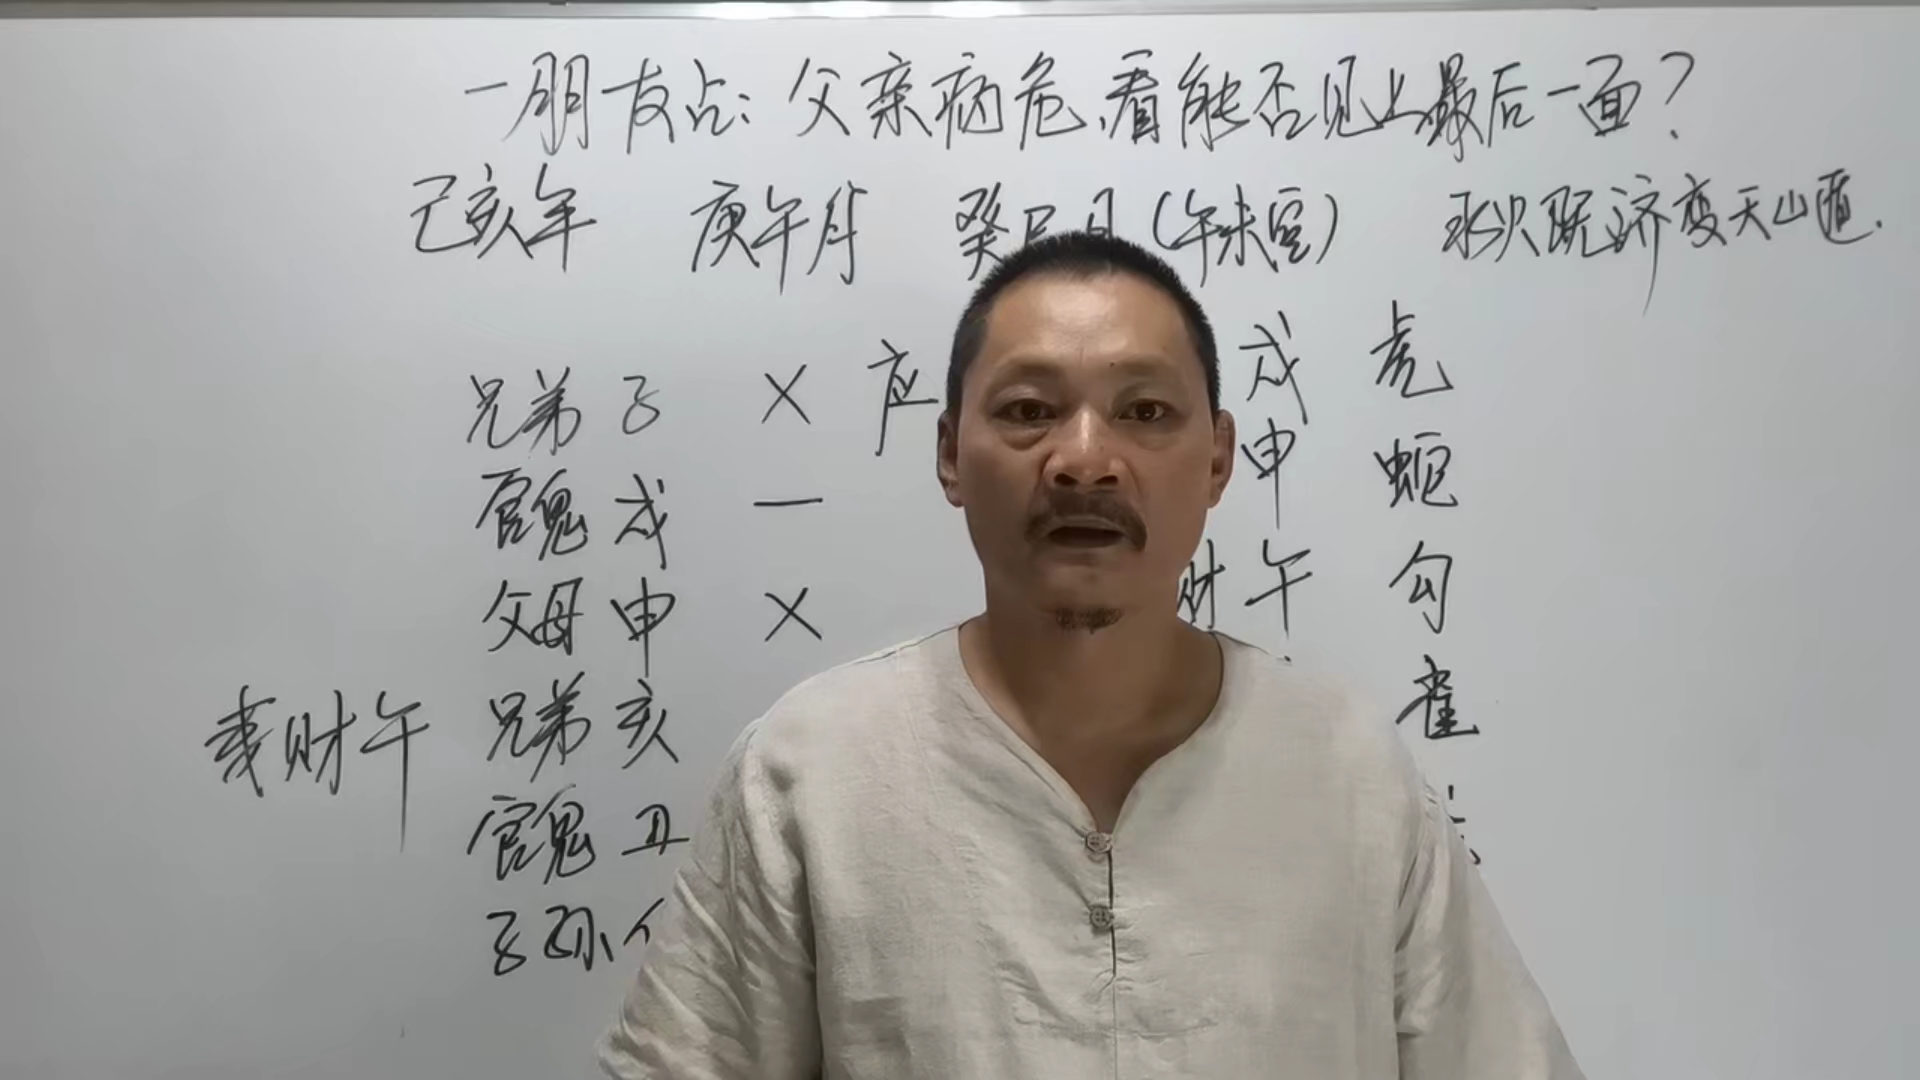 一朋友占：父亲病危，看能否见上最后一面？
己亥年 庚午月 癸巳日（午未空） 水火既济变天山遁.
兄弟 子 X 应 戌 虎
官鬼 戌 一 申 蛇
父母 申 X 财 午 勾
妻财午 兄弟 亥 雀
官鬼 丑
子孙